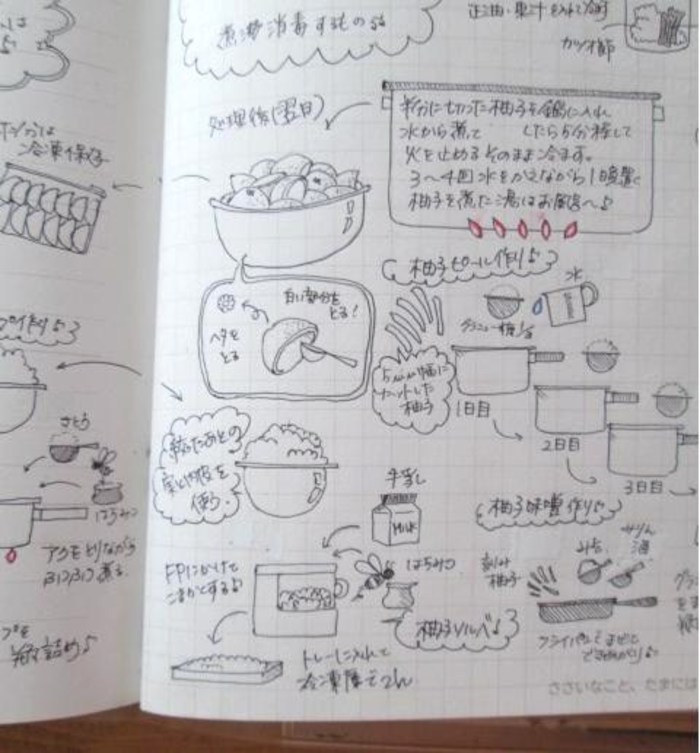 冷凍保存
さとう
はちみつ
アクをとりながら
煮る
煮沸消毒するもの
カツオ節
処理後(翌日)
半分に切った柚子を鍋に入れ
水から煮て したら5分待して
火を止めるそのまま冷ます。
3〜4回水をかえながら1晩置く
柚子を煮た湯はお風呂へ♪
白い部分を
とる!
ヘタを
とる
柚子ピール作り♪
水
グラニュー糖
5mm幅に
カットした
柚子
1日目
2日目
3日目
絞ったあとの
実と内皮を
使う
牛乳
MILK
はちみつ
FPにかけて
こまかくする♪
柚子ソルベ♪
トレーに入れて
冷凍庫で
柚子味噌作り♪
みそ
みりん
酒
刻み
柚子
フライパンでまぜて
できあがり♪